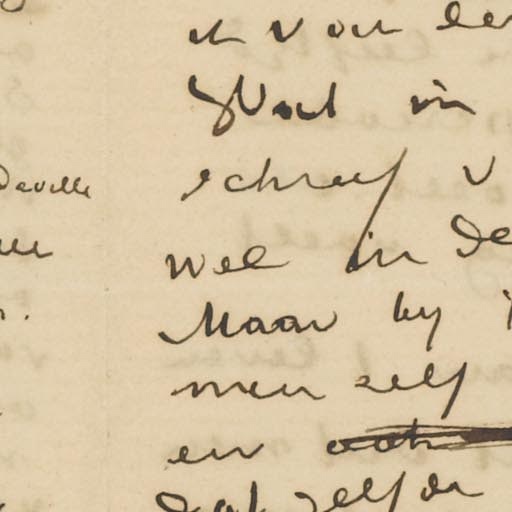 Daville
ik van de
Wat in
schreef v
wel in de
Maar by
men zelf
en ook
dat zelfde